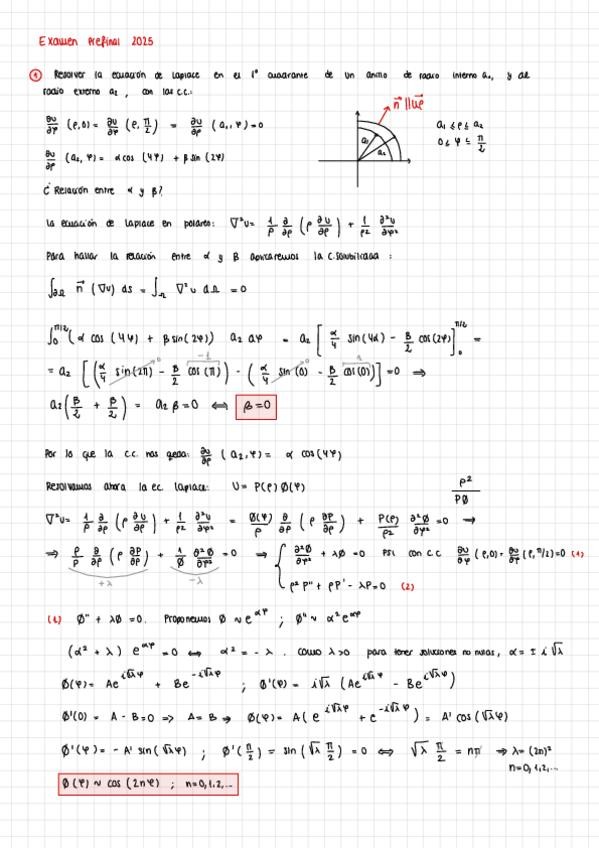 Examen Prefinal 2025
① Resolver la ecuación de Laplace en el 1º cuadrante de un anillo de radio interno a₁, y de
radio externo a₂, con las c.c.:
∂u/∂φ (ρ,0) = ∂u/∂φ (ρ, π/2) = ∂u/∂ρ (a₁, φ) = 0
n⃗ ∥ u⃗ρ
a₁ ≤ ρ ≤ a₂
0 ≤ φ ≤ π/2
∂u/∂ρ (a₂, φ) = α cos(4φ) + β sin(2φ)
¿ Relación entre α y β?
La ecuación de Laplace en polares: ∇²u = 1/ρ ∂/∂ρ (ρ ∂u/∂ρ) + 1/ρ² ∂²u/∂φ²
Para hallar la relación entre α y β aplicaremos la C. Solubilidad:
∫∂Ω n⃗ (∇u) ds = ∫Ω ∇²u dΩ = 0
∫₀^{π/2} (α cos(4φ) + β sin(2φ)) a₂ dφ = a₂ [α/4 sin(4φ) − β/2 cos(2φ)]₀^{π/2} =
= a₂ [(α/4 sin(2π) − β/2 cos(π)) − (α/4 sin(0) − β/2 cos(0))] = 0 ⇒
a₂(β/2 + β/2) = a₂β = 0 ⇔ β = 0
Por lo que la c.c. nos queda: ∂u/∂ρ (a₂, φ) = α cos(4φ)
Resolvamos ahora la ec. Laplace: U = P(ρ) Ø(φ)
ρ²/PØ
∇²u = 1/ρ ∂/∂ρ (ρ ∂u/∂ρ) + 1/ρ² ∂²u/∂φ² = Ø(φ)/ρ ∂/∂ρ (ρ ∂P/∂ρ) + P(ρ)/ρ² ∂²Ø/∂φ² = 0 ⇒
⇒ ρ/P ∂/∂ρ (ρ ∂P/∂ρ) + 1/Ø ∂²Ø/∂φ² = 0 ⇒ { ∂²Ø/∂φ² + λØ = 0 PSL con C.C ∂u/∂φ (ρ,0) = ∂u/∂φ (ρ, π/2) = 0 (1)
+λ −λ ρ²P'' + ρP' − λP = 0 (2)
(1) Ø'' + λØ = 0. Proponemos Ø ~ e^{αφ} ; Ø'' ~ α² e^{αφ}
(α² + λ) e^{αφ} = 0 ⇔ α² = −λ. Como λ>0 para tener soluciones no nulas, α = ± i√λ
Ø(φ) = Ae^{i√λφ} + Be^{−i√λφ} ; Ø'(φ) = i√λ (Ae^{i√λφ} − Be^{i√λφ})
Ø'(0) = A − B = 0 ⇒ A = B → Ø(φ) = A(e^{i√λφ} + e^{−i√λφ}) = A' cos(√λφ)
Ø'(φ) = − A' sin(√λφ) ; Ø'(π/2) = sin(√λ π/2) = 0 ⇔ √λ π/2 = nπ ⇒ λ = (2n)²
n = 0, 1, 2, ...
Ø(φ) ~ cos(2nφ) ; n = 0, 1, 2, ...